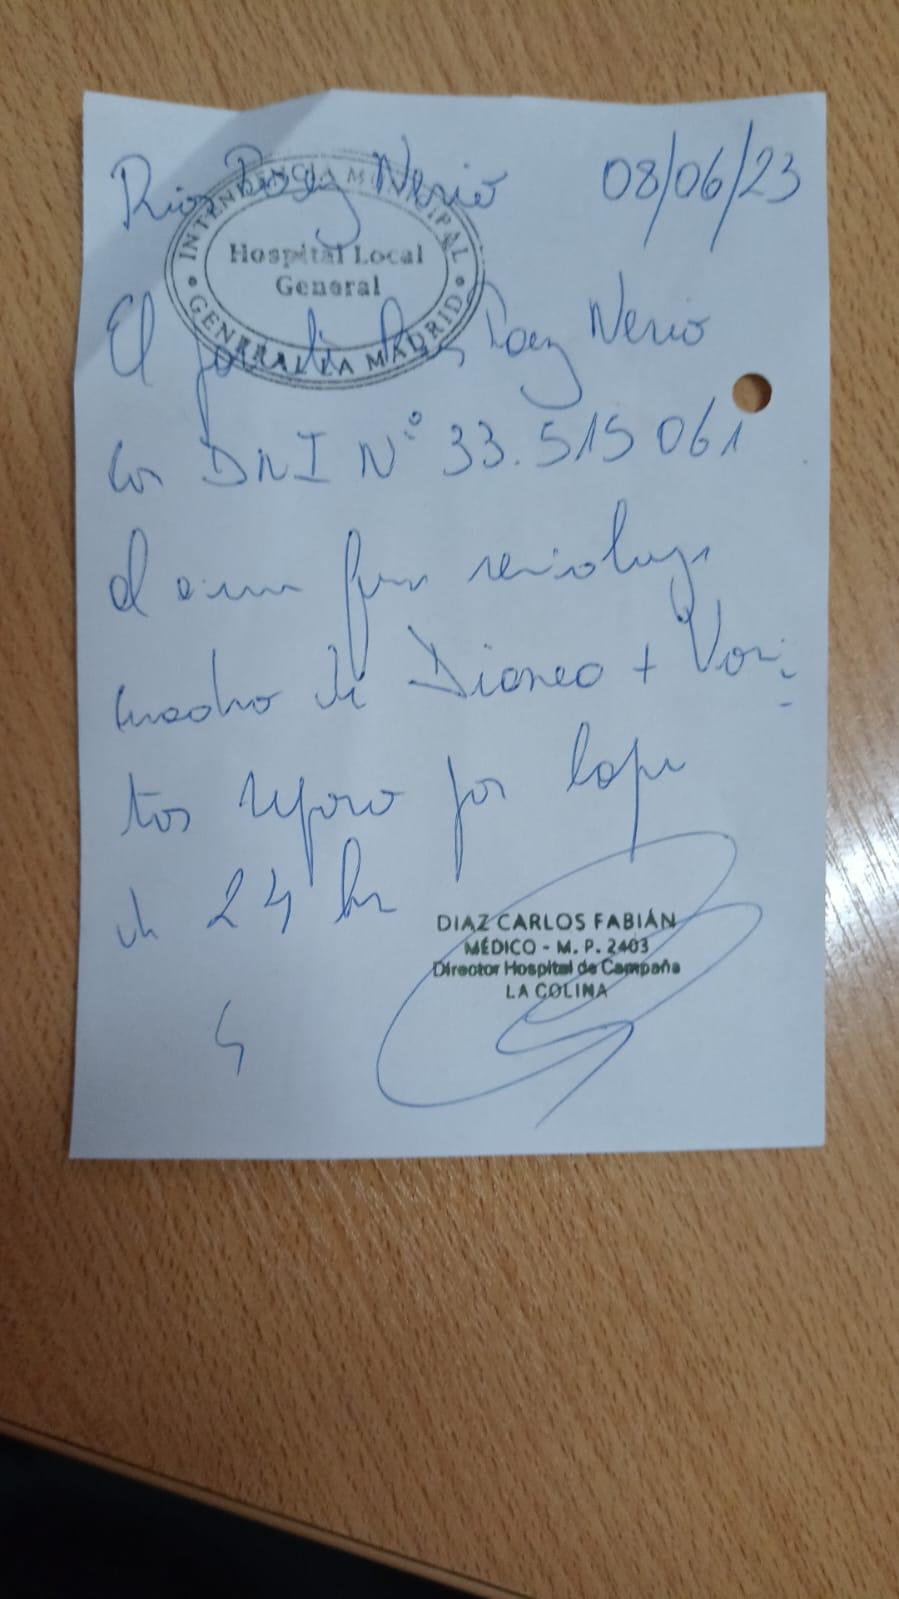 Rios Nerio 08/06/23
INTENDENCIA MUNICIPAL
Hospital Local
General
GENERAL LA MADRID
El Nerio
con DNI N° 33.515 061
cuadro de Diarrea + Vomi-
tos reposo por
de 24 hs
DIAZ CARLOS FABIÁN
MÉDICO - M. P. 2403
Director Hospital de Campaña
LA COLINA